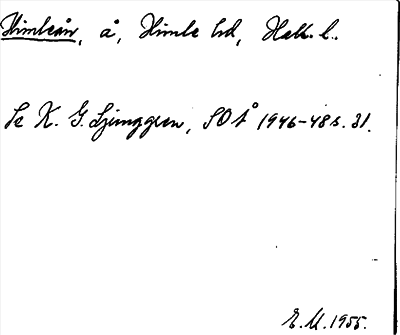 Himleån, å, Himle hd, Hall. l..
Se K. G. Ljunggren, SOÅ 1946-48 s. 31.
E. U. 1955.